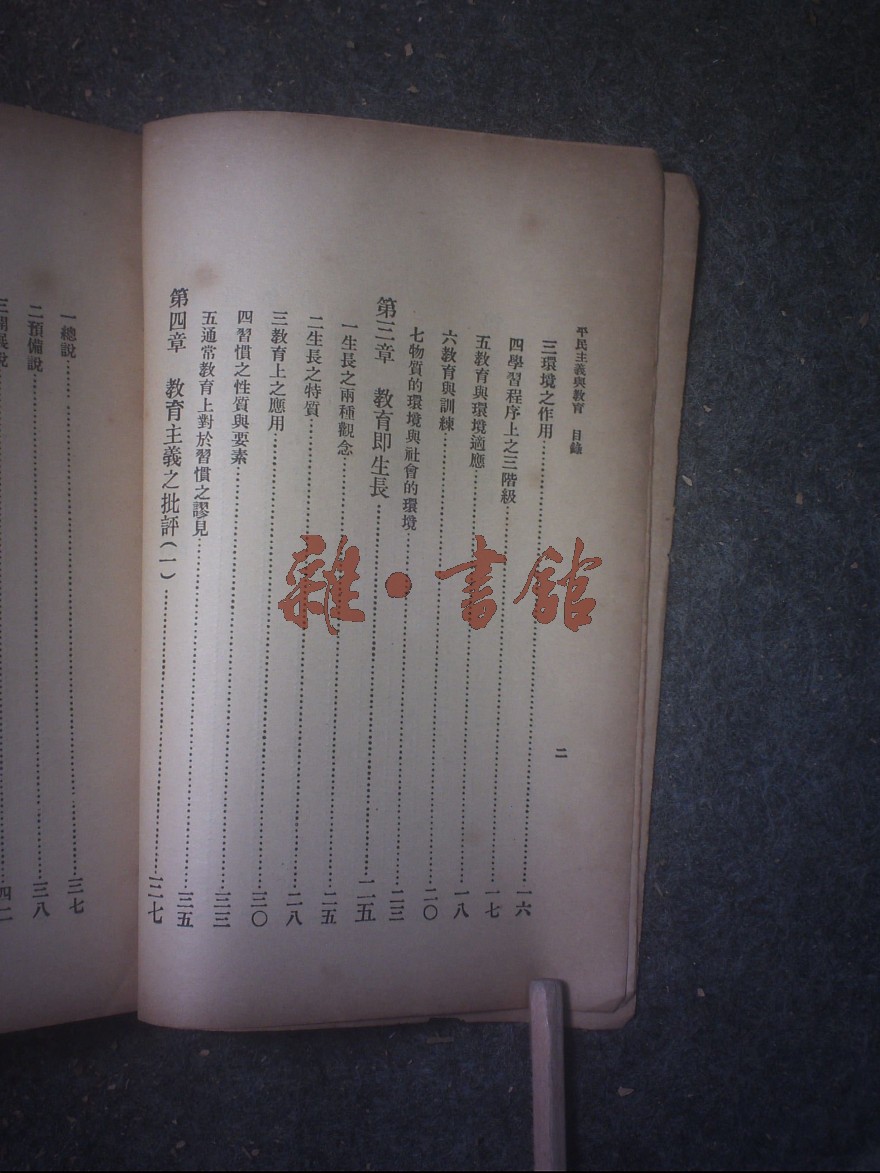 平民主義與教育　目錄
二
三環境之作用……一六
四學習程序上之三階級……一七
五教育與環境適應……一八
六教育與訓練……二〇
七物質的環境與社會的環境……二三
第三章　教育即生長……二五
一生長之兩種觀念……二五
二生長之特質……二八
三教育上之應用……三〇
四習慣之性質與要素……三三
五通常教育上對於習慣之謬見……三五
第四章　教育主義之批評(一)……三七
一總說……三七
二預備說……三八
三開展說
雜·書館